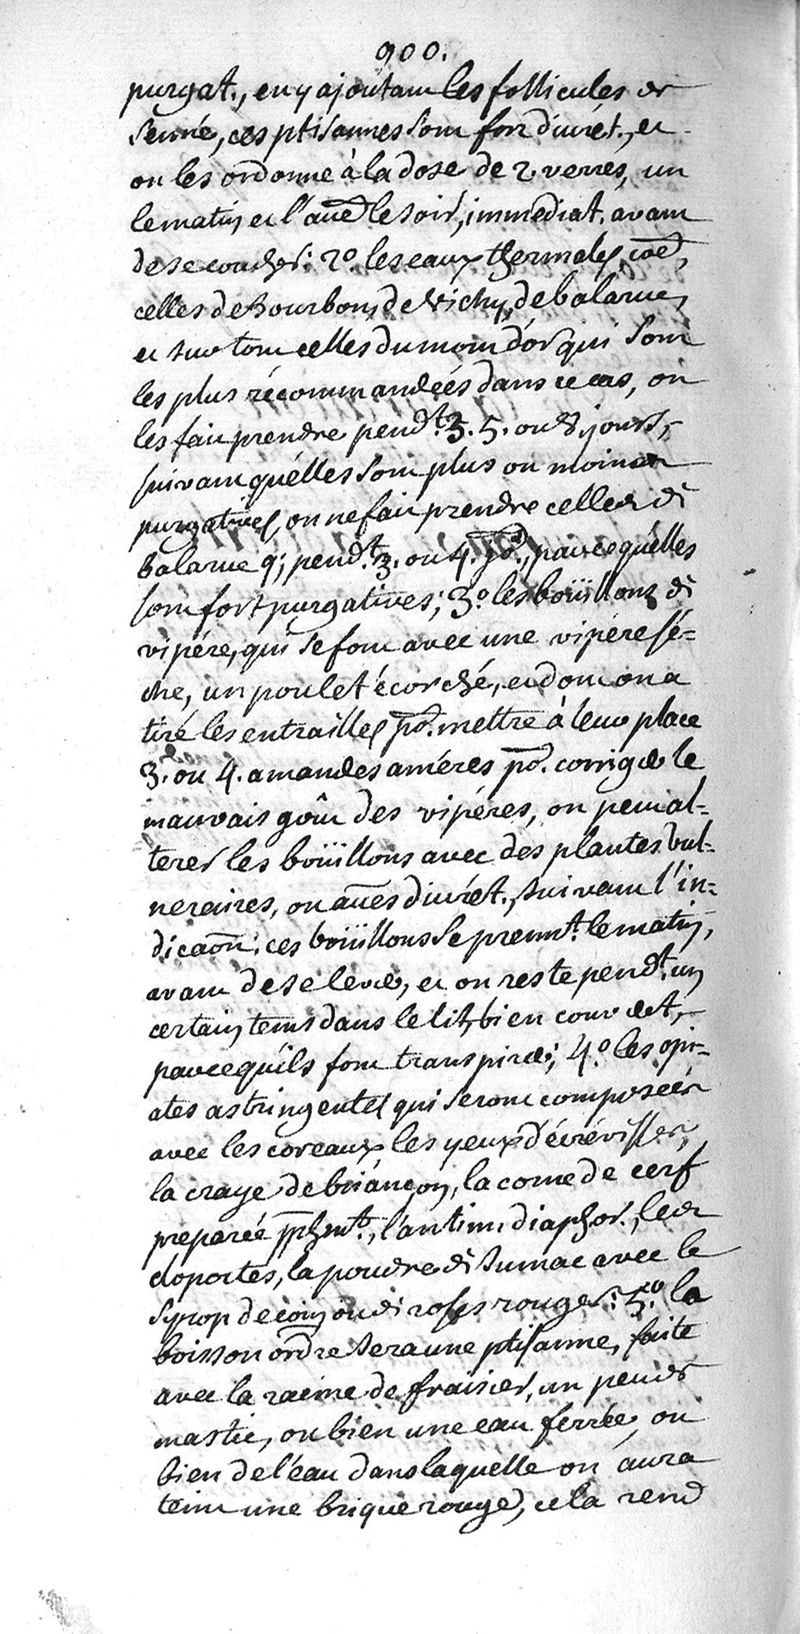 900.
purgat., en y ajoûtant les follicules de
senné, ces ptisannes sont fort diurét., et
on les ordonne à la dose de 2 verres, un
le matin et l'aue le soir, immediat. avant
de se coucher: 2º. les eaux thermales, coe,
celles de Bourbon, de Vichy, de balaruc,
et sur tout celles du mont d'or qui sont
les plus récommandéés dans ce cas, on
les fait prendre pendt. 3. 5. ou 8. jours,
suivant quélles sont plus ou moins
purgatives, on ne fait prendre celles de
balaruc q; pendt. 3. ou 4. jrs., parce quélles
sont fort purgatives; 3º. les boüillons de
vipére, qui se font avec une vipére sé=
che, un poulet écorché, et dont on a
tiré les entrailles pr. mettre à leur place
3. ou 4. amandes améres pr. corriger le
mauvais goût des vipéres, on peut al=
terer les boüillons avec des plantes vul=
neraires, ou aues diurét., suivant l'in=
dicaon; ces boüillons se prennt. le matin,
avant de se lever, et on reste pendt. un
certain tems dans le lit, bien couvert,
parce quíls font transpirer; 4º. les opi=
ates astringentes qui seront composées
avec les coreaux, les yeux d'écrévisses,
la craye de briançon, la corne de cerf
preparée pphmt., l'antim. diaphor., les
cloportes, la poudre de sumac avec le
syrop de coin ou de roses rouges: 5º. la
boisson ordre sera une ptisanne, faite
avec la racine de fraisier, un peu de
mastic, ou bien une eau ferrée, ou
bien de l'eau dans laquelle on aura
teint une brique rouge, cela rend